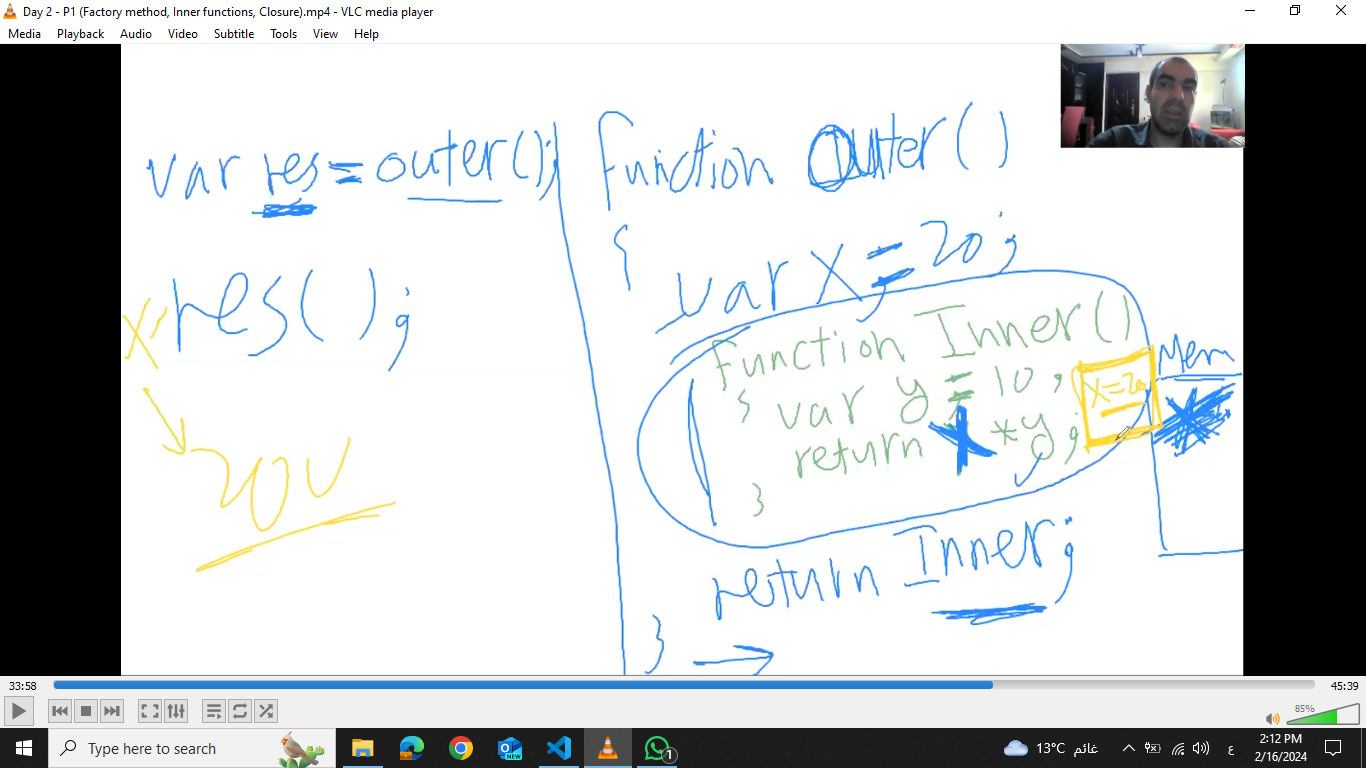 Day 2 - P1 (Factory method, Inner functions, Closure).mp4 - VLC media player
Media Playback Audio Video Subtitle Tools View Help
var res = outer();
res();
x
200
function Outer()
{
var x = 20;
function Inner()
{ var y = 10;
return x * y;
}
x=20
return Inner;
}
Mem
33:58
45:39
85%
Type here to search
NEW
1
13°C غائم
ع
2:12 PM
2/16/2024